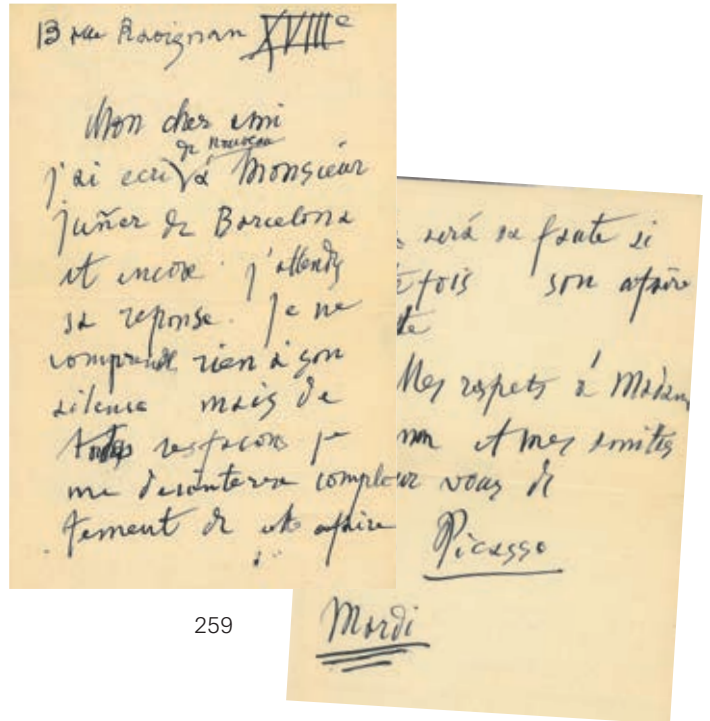 13 rue Ravignan XVIIIe
Mon cher ami
de nouveau
j'ai ecri à Monsieur
Juñer de Barcelona
et encore j'attends
sa reponse. Je ne
comprends rien a son
silence mais de
toutes les facons je
me desinterese complete
tement de cete afaire
sera sa faute si
fois son afaire
te
Mes respets à Madam
non et mes amities
vous de
Picasso
Mardi
259